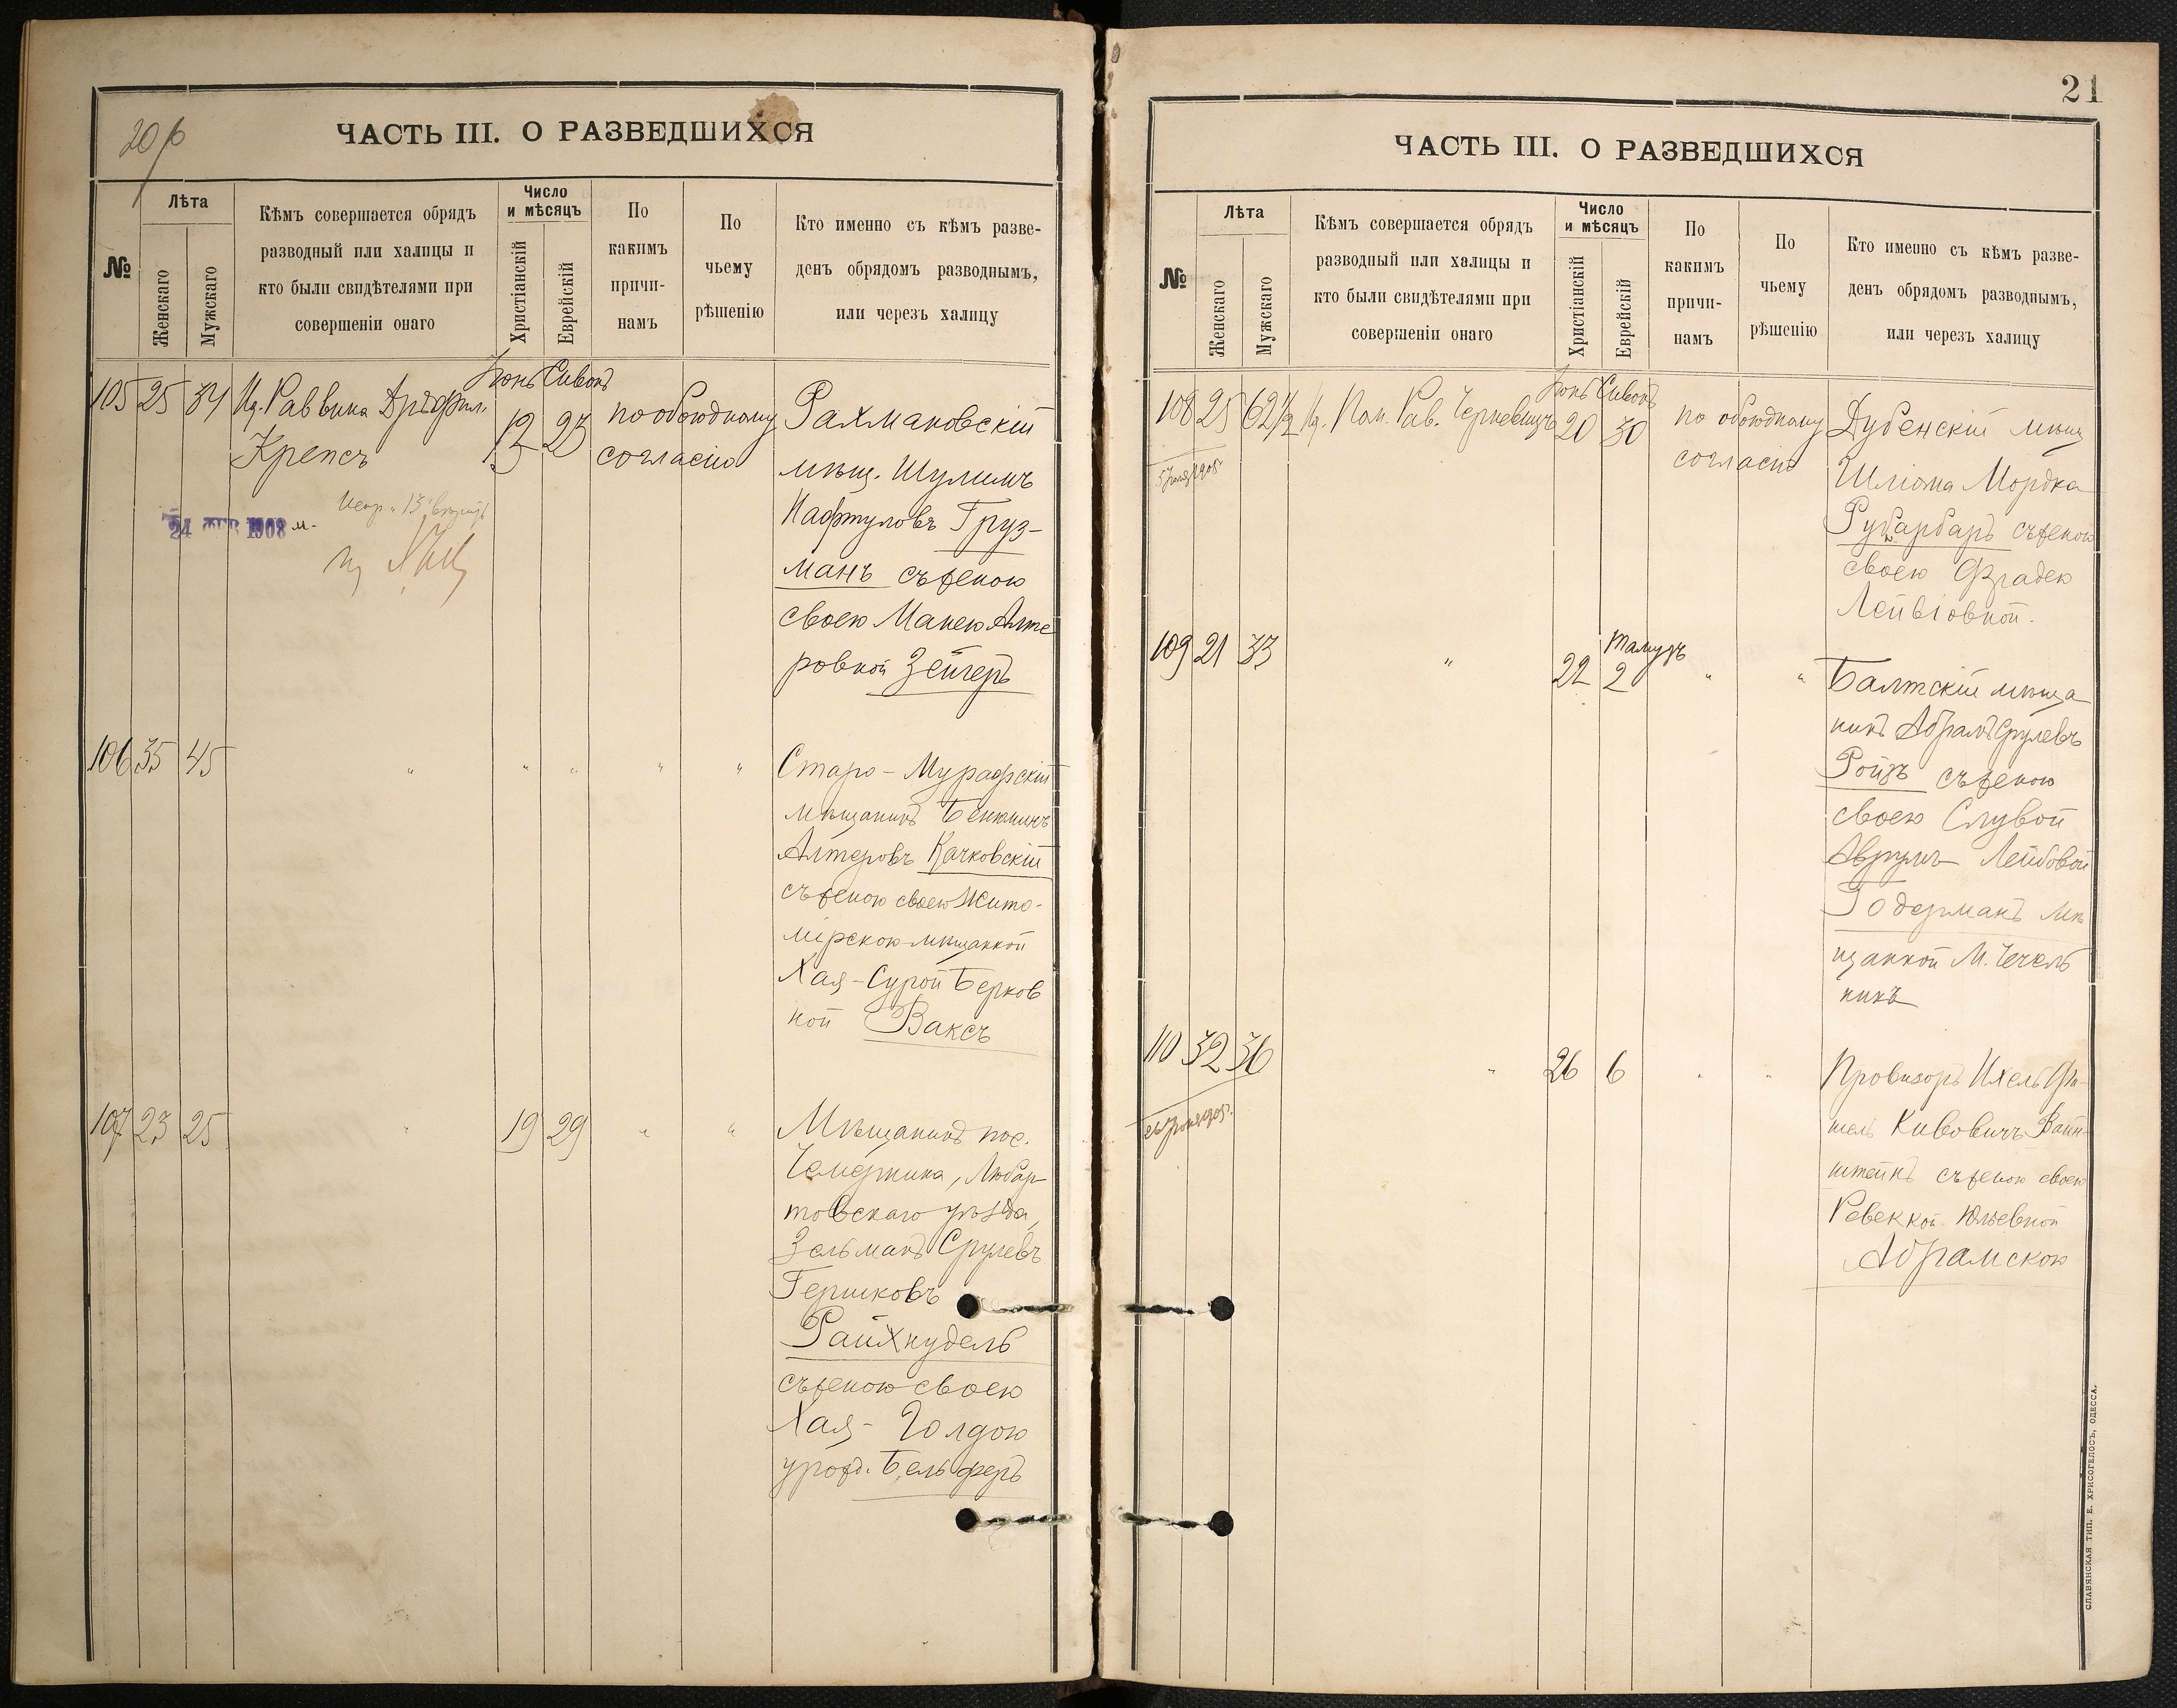 20 об
ЧАСТЬ III. О РАЗВЕДШИХСЯ
№
Лѣта
Женскаго
Мужскаго
Кѣмъ совершается обрядъ
разводный или халицы и
кто были свидѣтелями при
совершеніи онаго
Число
и мѣсяцъ
Христіанскій
Еврейскій
По
какимъ
причи-
намъ
По
чьему
рѣшенію
Кто именно съ кѣмъ разве-
денъ обрядомъ разводнымъ,
или черезъ халицу
105 25 34 Раввина
Крепсъ
Іюнь Сивонъ
23
по обоюдному
согласію
Рахмановскій
мѣщ. Шулимъ
Нафтуловъ Груз-
манъ съ женою
своею Манею Алте
ровной Зейгеръ
24 ФЕВ 1908
106 35 45 " " " " "
Старо-Мурафскій
мѣщанинъ Бенюминъ
Алтеровъ Качковскій
съ женою своею Жито-
мірскою мѣщанкой
Хая-Сурой Берков
ной Ваксъ
107 23 25 " 19 29 " "
Мѣщанинъ пос.
Чемерника, Любар
товскаго уѣзда,
Зельманъ Срулевъ
Гершковъ
Райхнудель
съ женою своею
Хая-Голдою
урожд. Бельферъ
21
ЧАСТЬ III. О РАЗВЕДШИХСЯ
№
Лѣта
Женскаго
Мужскаго
Кѣмъ совершается обрядъ
разводный или халицы и
кто были свидѣтелями при
совершеніи онаго
Число
и мѣсяцъ
Христіанскій
Еврейскій
По
какимъ
причи-
намъ
По
чьему
рѣшенію
Кто именно съ кѣмъ разве-
денъ обрядомъ разводнымъ,
или черезъ халицу
108 25 62½ Пом. Рав.
Іюнь Сивонъ
20 30
по обоюдному
согласію
Дубенскій мѣщ
Шліома Мордка
съ женою
своею Фрадею
Лейвіовной.
109 21 33 " 22
Тамузъ
2 " "
Балтскій мѣща
нинъ Абрамъ Срулевъ
Ройзъ съ женою
своею Слувой
Аврумъ Лейбовой
Годерманъ мѣ
щанкой М. Чечель
никъ
110 32 36 " 26 6 " "
Провизоръ Ихель Фи-
шель Кивовичъ Вайн-
штейнъ съ женою своею
Ревеккой Юльевной
Абрамскою
СЛАВЯНСКАЯ ТИП. Е. ХРИСОГЕЛОСЪ, ОДЕССА.